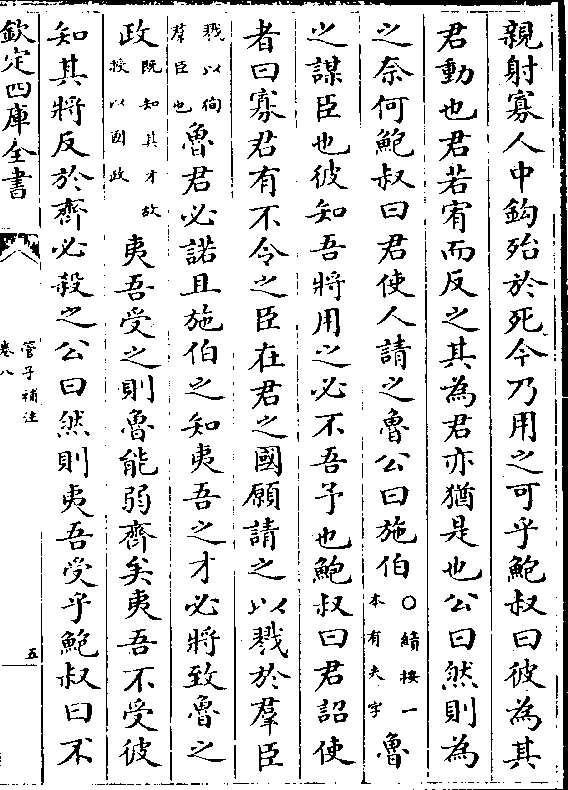 親射寡人中鈎殆於死今乃用之可乎鮑叔曰彼為其
君動也君若宥而反之其為君亦猶是也公曰然則為
之奈何鮑叔曰君使人請之魯公曰施伯○績按一本有夫字魯
之謀臣也彼知吾將用之必不吾予也鮑叔曰君詔使
者曰寡君有不令之臣在君之國願請之以戮於羣臣
戮以徇羣臣也魯君必諾且施伯之知夷吾之才必將致魯之
政既知其才故授以國政夷吾受之則魯能弱齊矣夷吾不受彼
知其將反於齊必殺之公曰然則夷吾受乎鮑叔曰不
欽定四庫全書
管子補注
卷八
五